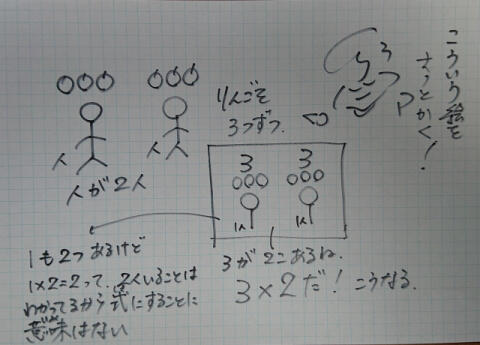 こういう絵を
さっとかく!
りんごを
3つずつ
人 人
人が2人
3 3
1人 1人
3が2こあるね.
3×2だ! こうなる.
1も2つあるけど
1×2=2って、2人いることは
わかってるから式にすることに
意味はない